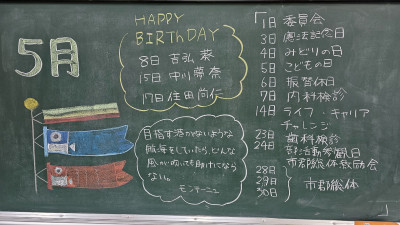 5月
HAPPY
BIRTHDAY
8日 吉弘 葵
15日 中川 夢奈
17日 住田 尚仁
目指す港がないような
航海をしていたら、どんな
風が吹いても助けてなら
ない。
モンテーニュ
「1日 委員会
3日 憲法記念日
4日 みどりの日
5日 こどもの日
6日 振替休日
7日 内科検診
14日 ライフ・キャリア
チャレンジ
23日 歯科検診
24日 部活動参観日
市郡総体激励会
28日
29日
30日
市郡総体
」